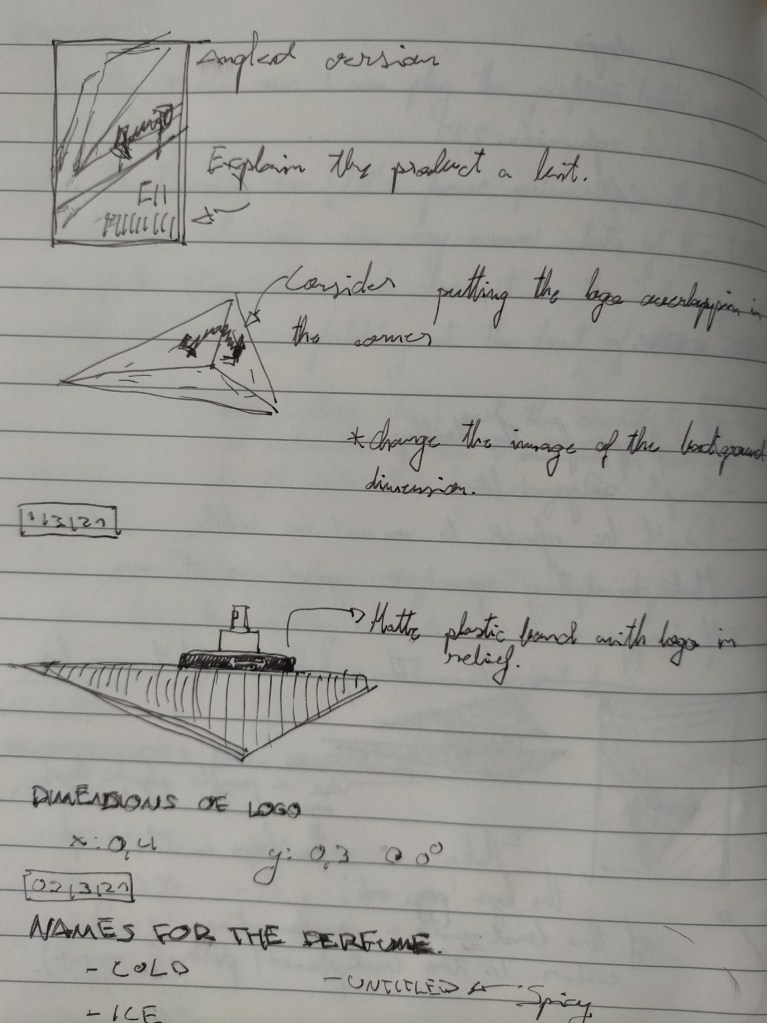 Angled version
Explain the product a bit.
Consider putting the logo overlapping in
the corner
*change the image of the background
dimension.
Matte plastic band with logo in
relief.
DIMENSIONS OF LOGO
x: 0,4 y: 0,3 0°
02/3/21
NAMES FOR THE PERFUME.
- COLD
- UNTITLED Spicy
- ICE